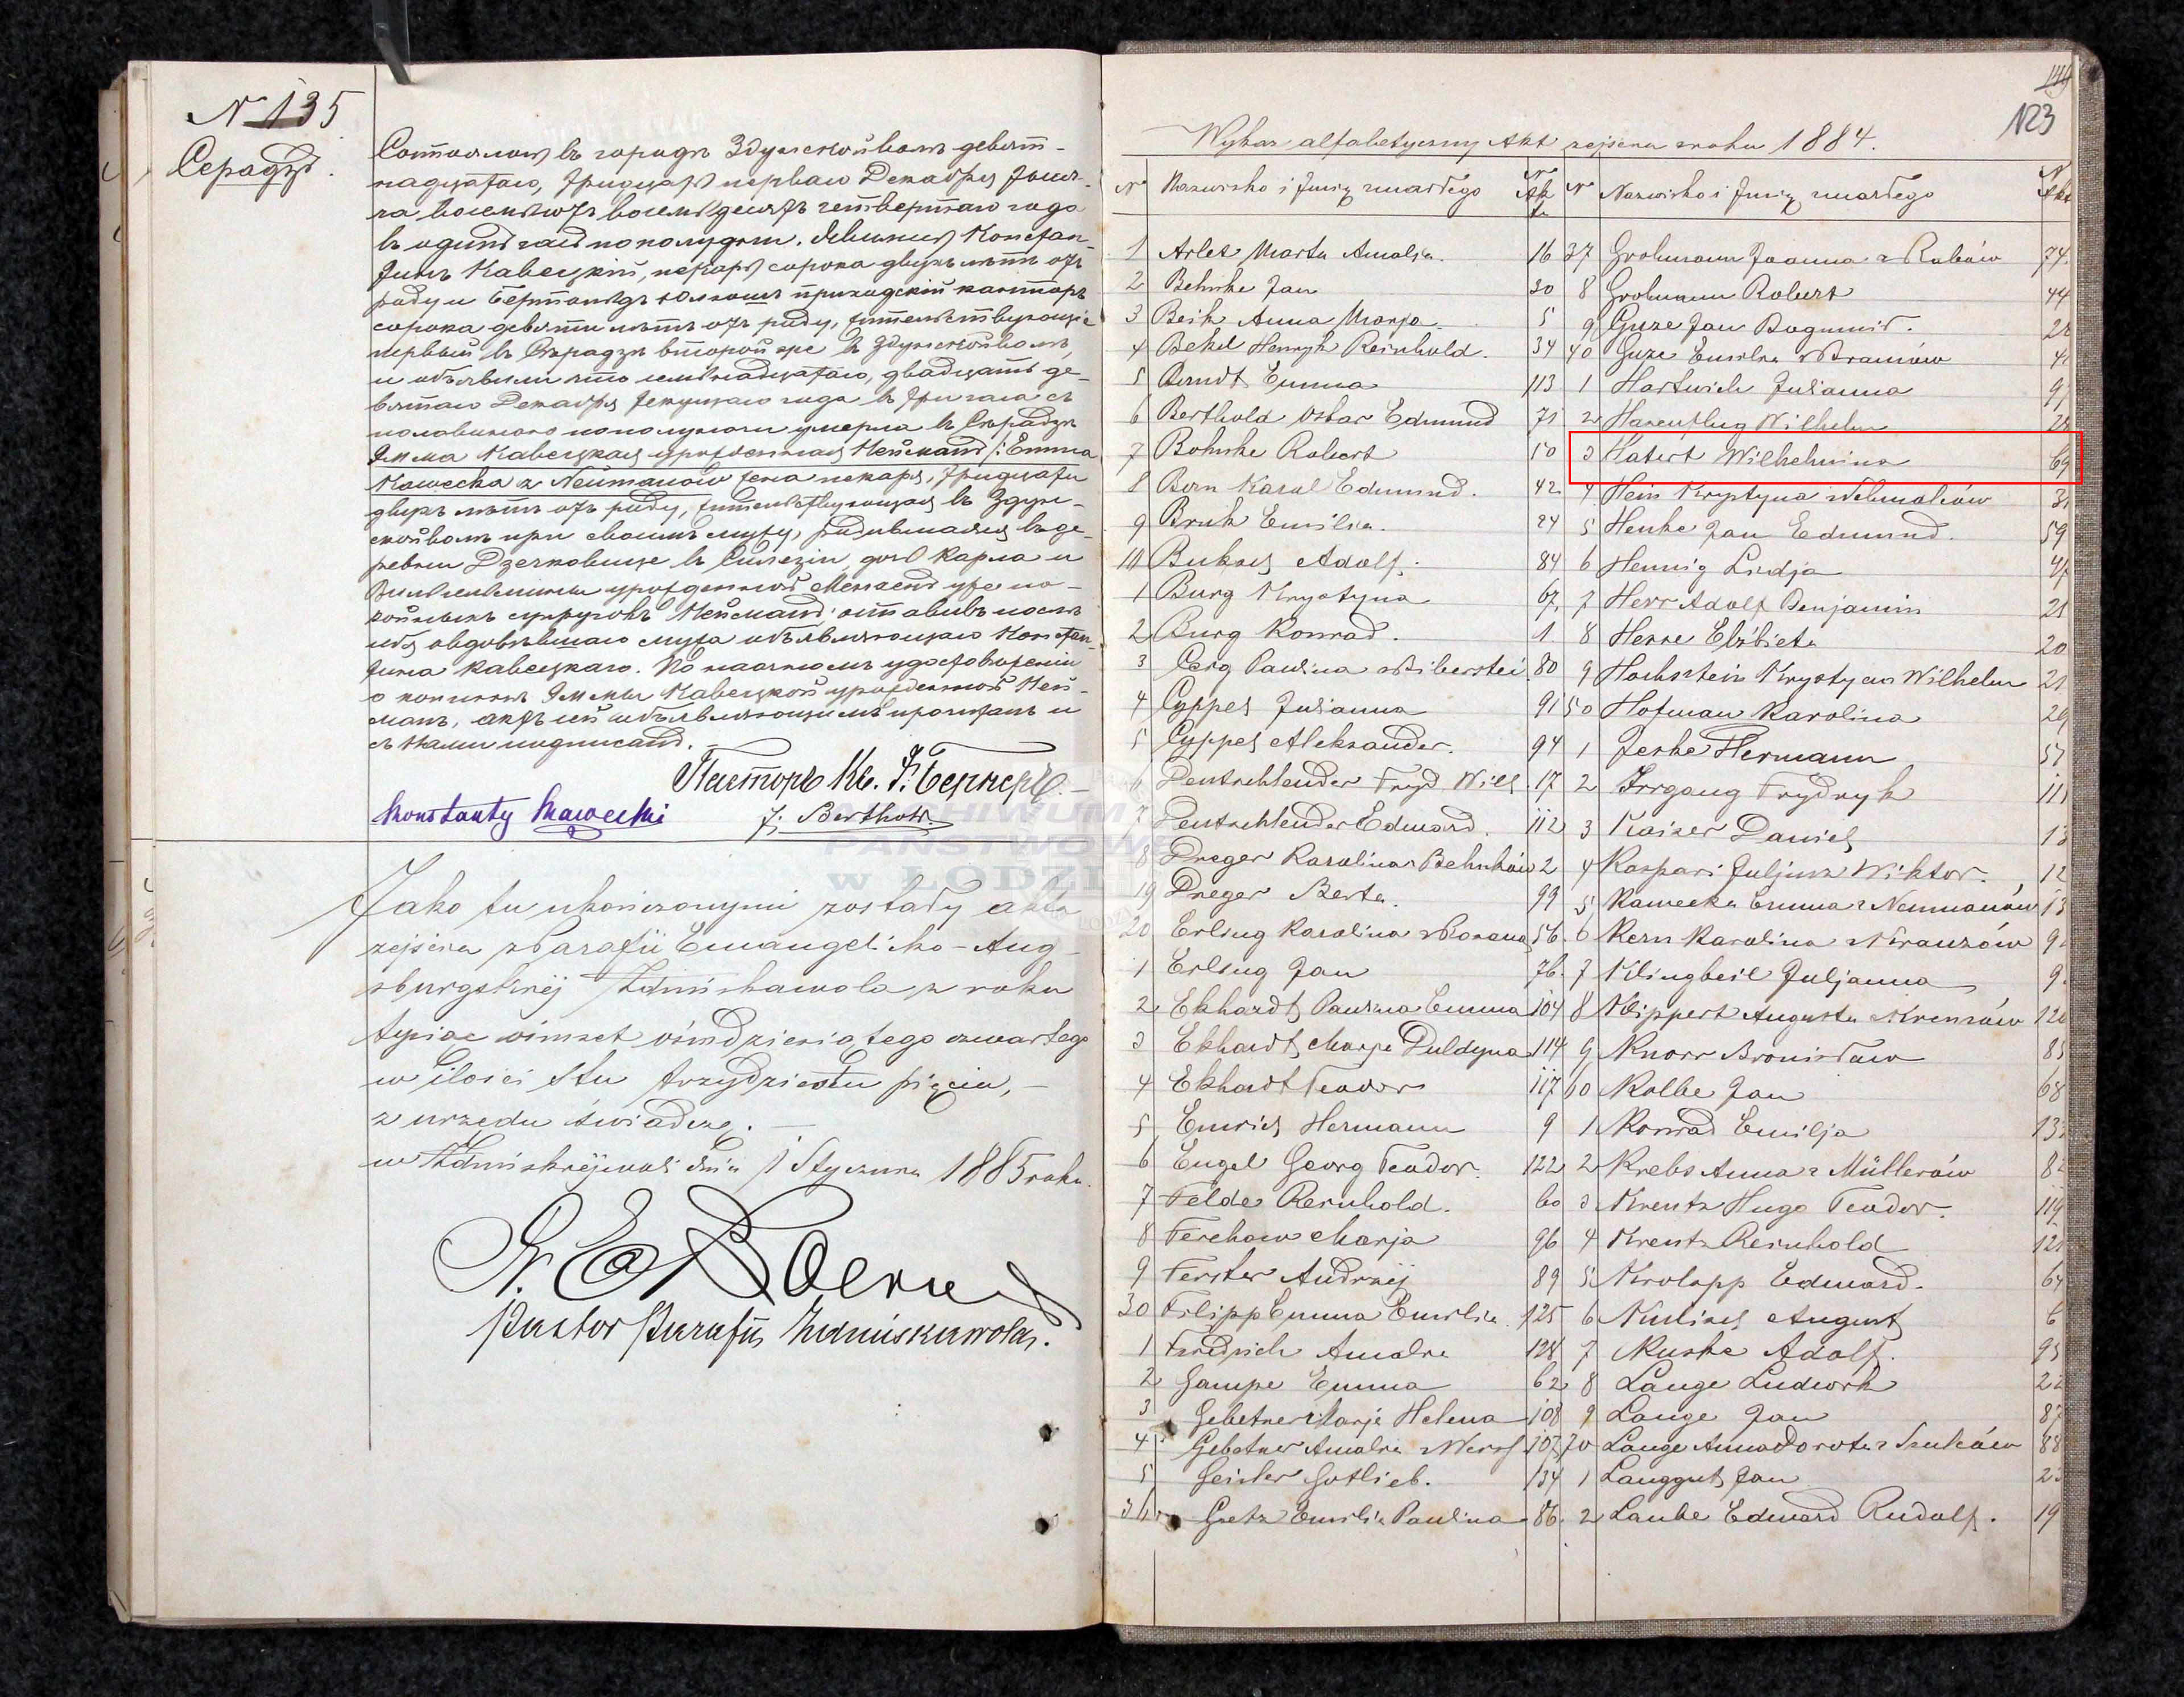 N 135
Серадзь.
Состоялось въ городѣ Здунской воли девят-
надцатаго, тридцать перваго Декабря тыся-
ча восемьсотъ восемьдесятъ четвертаго года
въ одинъ часъ по полудни. Явились Констан-
тинъ Кавецкій, пекарь сорока двухъ лѣтъ отъ
роду и приходскій канторъ
сорока девяти лѣтъ отъ роду, жительствующіе
первый въ Сѣрадзѣ второй же въ Здунской воли,
и объявили что семнадцатаго, двадцать де-
вятаго Декабря текущаго года въ три часа съ
половиною по полуночи умерла въ Сѣрадзѣ
Эмма Кавецкая урожденная Нейманъ /: Emma
Kawecka z Neumanów жена пекаря, тридцати
двухъ лѣтъ отъ роду, жительствующая въ Здун-
ской воли при своемъ мужу, родившаяся въ де-
ревни въ Силезіи, дочь Карла и
Вильгельмины урожденной уже по-
койныхъ супруговъ Нейманъ, оставивъ послѣ
себя овдовѣвшаго мужа объявляющаго Констан-
тина Кавецкаго. По наочномъ удостовѣреніи
о кончинѣ Эммы Кавецкой урожденной Ней-
манъ, актъ сей объявляющимъ прочитанъ и
съ нами подписанъ.
Пасторъ Кс. Э. Бернеръ.
Konstanty Kawecki J. Berthold.
Jako tu ukończonymi zostały akta
zejścia z Parafii Ewangelicko-Aug-
sburgskiéj Zduńskawola z roku
tysiąc ośmset ośmdziesiątego czwartego
w ilości Stu trzydziestu pięciu, —
z urzędu świadczę. —
w Zduńskiéjwoli dnia 1 Stycznia 1885 roku.
Pastor Parafii Zduńskawola.
ARCHIWUM
PAŃSTWOWE
w ŁODZI
149
123
Wykaz alfabetyczny Akt zejścia z roku 1884.
N Nazwisko i Imię zmarłego N Aktu N Nazwisko i Imię zmarłego N Aktu
1 Arlet Marta Amalja. 16
2 Behnke Jan 30
3 Beik Anna Marja. 5
4 Bekel Henryk Reinhold. 34
5 Berndt Emma 113
6 Berthold Oskar Edmund 71
7 Bohnke Robert 50
8 Born Karol Edmund. 42
9 Bruk Emilia. 24
10 Bukols Adolf. 84
1 Burg Krystyna 67.
2 Burg Konrad. 1
3 Cerg Paulina z Biberstei 80
4 Cyppel Julianna 91
5 Cyppel Aleksander. 94
6 Deutschlender Fryd Wilh. 17
7 Deutschlender Edward. 112
8 Dreger Karolina z Behnków 2
19 Dreger Berta. 99
20 Erling Karolina 56.
1 Erling Jan 76.
2 Ekhardt Paulina Emma 104
3 Ekhardt Marja 114
4 Ekhardt Teodor 117
5 Emrich Hermann 9
6 Engel Georg Teodor. 122
7 Felde Reinhold. 60
8 Ferchow Marja 96
9 Ferster Andrzej 89
30 Filipp Emma Emilia. 125
1 Fredrich Amalia 128
2 Gampe Emma 62
3 Gebetner Marja Helena 108
4 Gebetner Amalia 107
5 Geisler Gotlieb. 134
36 Goetz Emilia Paulina 86.
37 Grohmann Joanna z Rabów 74.
8 Grohmann Robert 44
9 Guze Jan Bogumił.
40 Guze Emilia 4
1 Hartwich Julianna 9
2 Hasenflug Wilhelm 28
3 Hatert Wilhelmina 69
4 Hein Krystyna 3
5 Henke Jan Edmund. 59
6 Hennig Lidja 4
7 Herr Adolf Benjamin 21
8 Herse Elżbieta 20
9 Hochstein Krystyan Wilhelm 21
50 Hofman Karolina 29
1 Jeske Hermann 57
2 Irrgang Frydryk 11
3 Kaiser Daniel 13
4 Kaspari Juljusz Wiktor. 12
5 Kawecka Emma z Neumanów 13
6 Kern Karolina z Kranzów 9
7 Klingbeil Juljanna 9.
8 Klippert Augusta z Krenzów 12
9 Knorr Bronisław 85
60 Kolbe Jan 68
1 Konrad Emilja 13
2 Krebs Anna z Müllerów 8
3 Krentz Hugo Teodor. 119
4 Krentz Reinhold 12
5 Krolopp Edward. 64
6 Kulisch August 6
7 Kuske Adolf. 95
8 Lange Ludwik 22
9 Lange Jan 87
70 Lange Anna Dorota z Szulców 88
1 Langgut Jan 2
2 Laube Edward Rudolf. 19